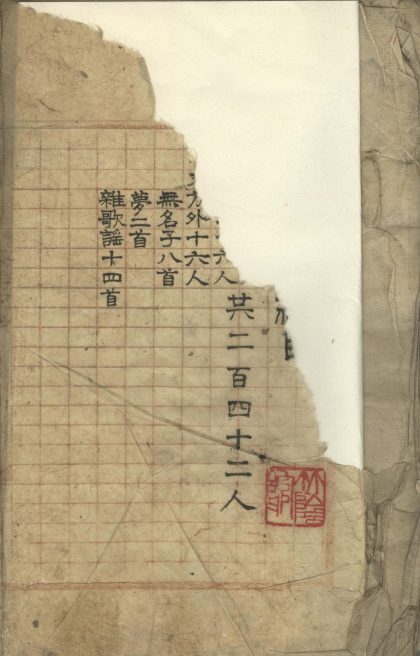 共二百四十二人
六人
方外十六人
無名子八首
夢二首
雜歌謠十四首